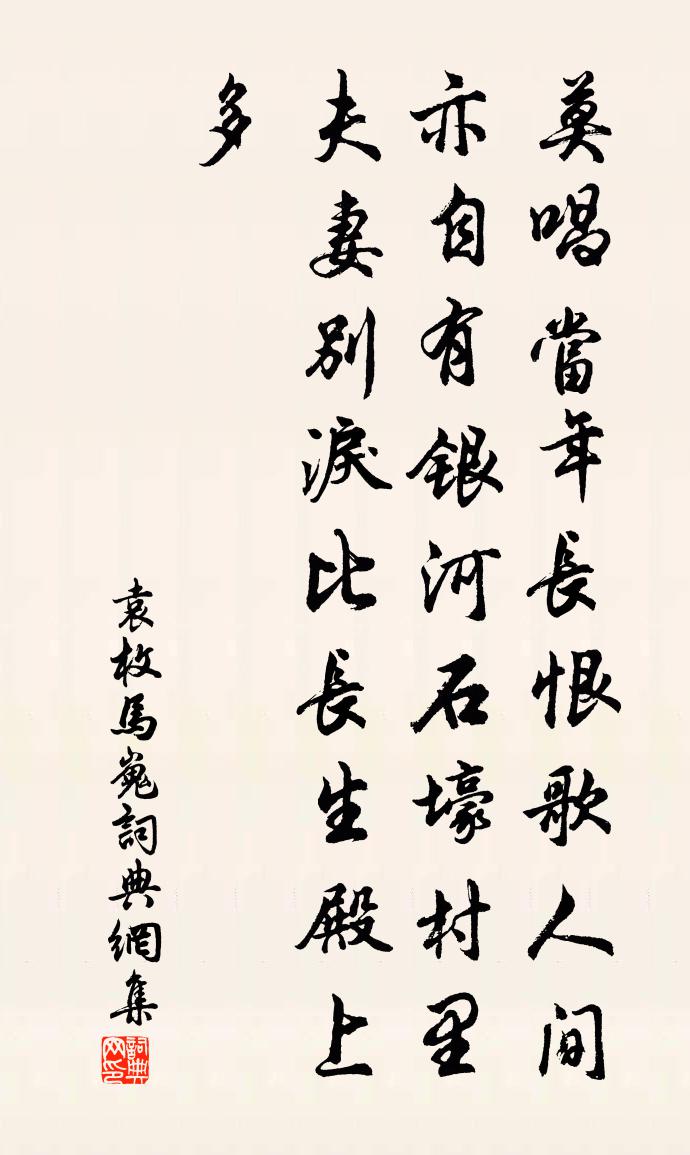 莫唱當年長恨歌人间
亦自有銀河石壕村里
夫妻别淚比長生殿上
多
袁枚馬嵬詞典網集
詞典网印